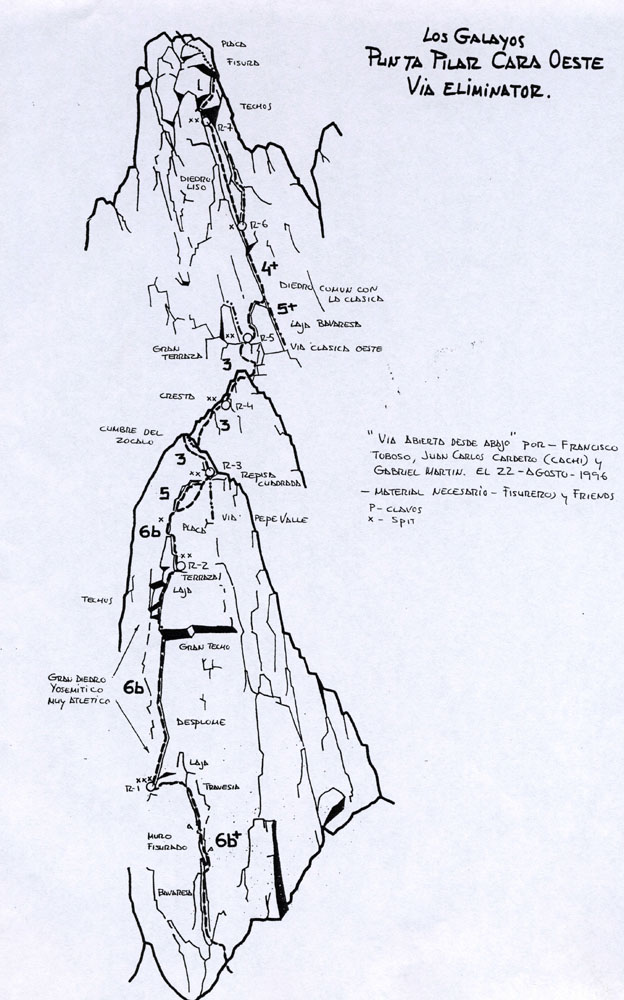 Los Galayos
Punta Pilar Cara Oeste
Via Eliminator.
Placa
Fisura
Techos
xx
R-7
Diedro
Liso
x
R-6
4+
Diedro comun con
la clasica
5+
Laja Bavaresa
xx
R-5
Gran
Terraza
Via clasica oeste
3
Cresta
xx
R-4
3
Cumbre del
Zocalo
3
R-3
Repisa
Cuadrada
xx
5
Via
Pepe Valle
x
6b
Placa
xx
R-2
Terraza
Laja
Techos
Gran Techo
Gran Diedro
Yosemitico
Muy Atletico
6b
Desplome
Laja
xxx
R-1
Travesia
Muro
Fisurado
6b+
Bavaresa
"Via abierta desde abajo" por - Francisco
Toboso, Juan Carlos Cardero (Cachi) y
Gabriel Martin. El 22-Agosto-1996
- Material necesario - Fisureros y Friends
P- Clavos
x - Spit